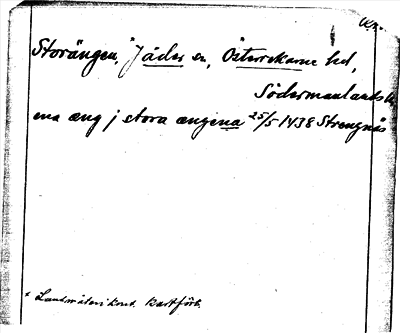 Storängen, Jäders sn, Österrekarne hd,
Södermanlands
ena æng j stora ængena 25/5 1438 Strengnäs
* Landmäterikont. kartförb.